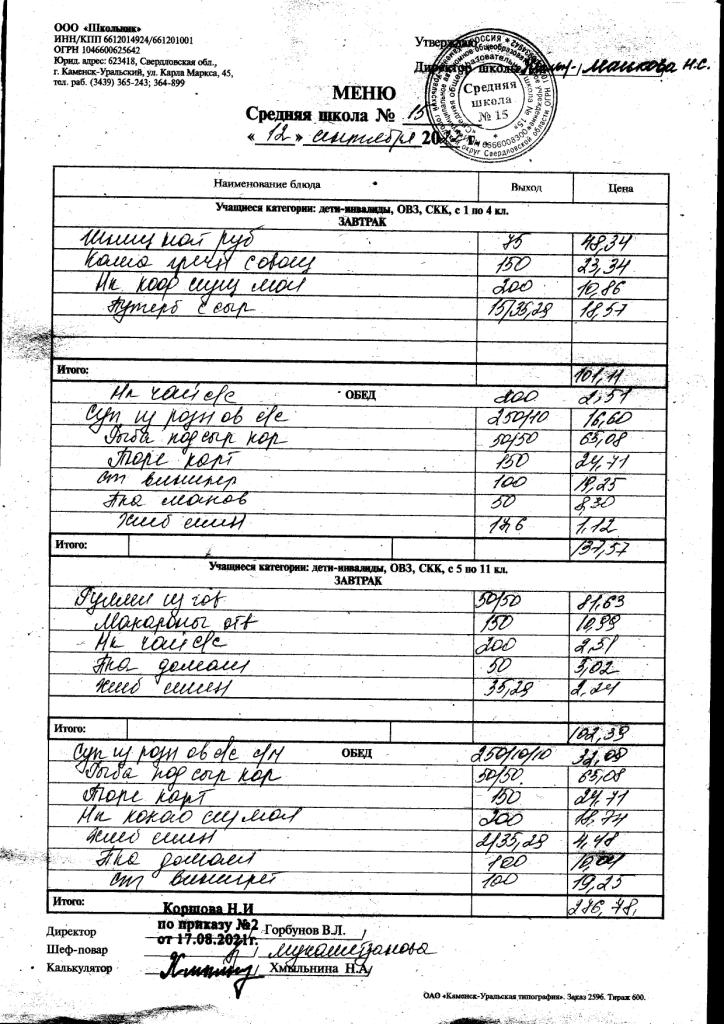 ООО «Школьник»
ИНН/КПП 6612014924/661201001
ОГРН 1046600625642
Юрид. адрес: 623418, Свердловская обл.,
г. Каменск-Уральский, ул. Карла Маркса, 45,
тел. раб. (3439) 365-243; 364-899
Утверждаю
Директор школы Маикова Н.С.
Средняя
школа
№ 15
МЕНЮ
Средняя школа № 15
« 12 » сентября 20 г.
Наименование блюда Выход Цена
Учащиеся категории: дети-инвалиды, ОВЗ, СКК, с 1 по 4 кл.
ЗАВТРАК
руб 75 48,34
Каша греч с овощ 150 23,34
Нк 200 10,86
Бутерб с сыр 15/35,29 18,57
Итого: 101,11
ОБЕД
Нк чай с/с 200 2,51
Суп из разн ов с/с 250/10 16,60
Рыба под сыр кор 50/50 65,08
Пюре карт 150 24,71
ст винигр 100 19,25
Пка 50 8,30
Хлеб 17,6 1,12
Итого: 137,57
Учащиеся категории: дети-инвалиды, ОВЗ, СКК, с 5 по 11 кл.
ЗАВТРАК
Гуляш из гов 50/50 81,63
Макароны отв 150 10,99
Нк чай с/с 200 2,51
Пка домаш 50 5,02
Хлеб 35,29 2,24
Итого: 102,39
ОБЕД
Суп из разн ов с/с с/м 250/10/10 32,08
Рыба под сыр кор 50/50 65,08
Пюре карт 150 24,71
Нк какао сгу мол 200 18,74
Хлеб 2/35,29 4,48
Пка домаш 100 10,04
ст винигрет 100 19,25
Итого: 276,78
Коршова Н.И
по приказу №2
от 17.08.2021г.
Директор / Горбунов В.Л. /
Шеф-повар / Мухаметзанова
Калькулятор / Хмыльнина Н.А/
ОАО «Каменск-Уральская типография». Заказ 2596. Тираж 600.